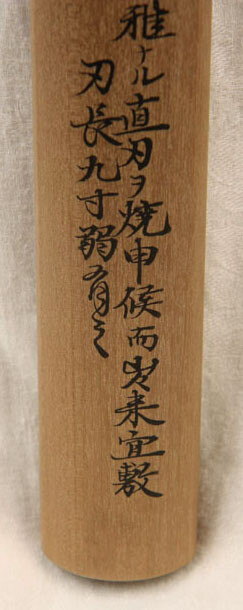 雅ナル直刃ヲ焼申候而出来宜敷
刃長九寸弱有之